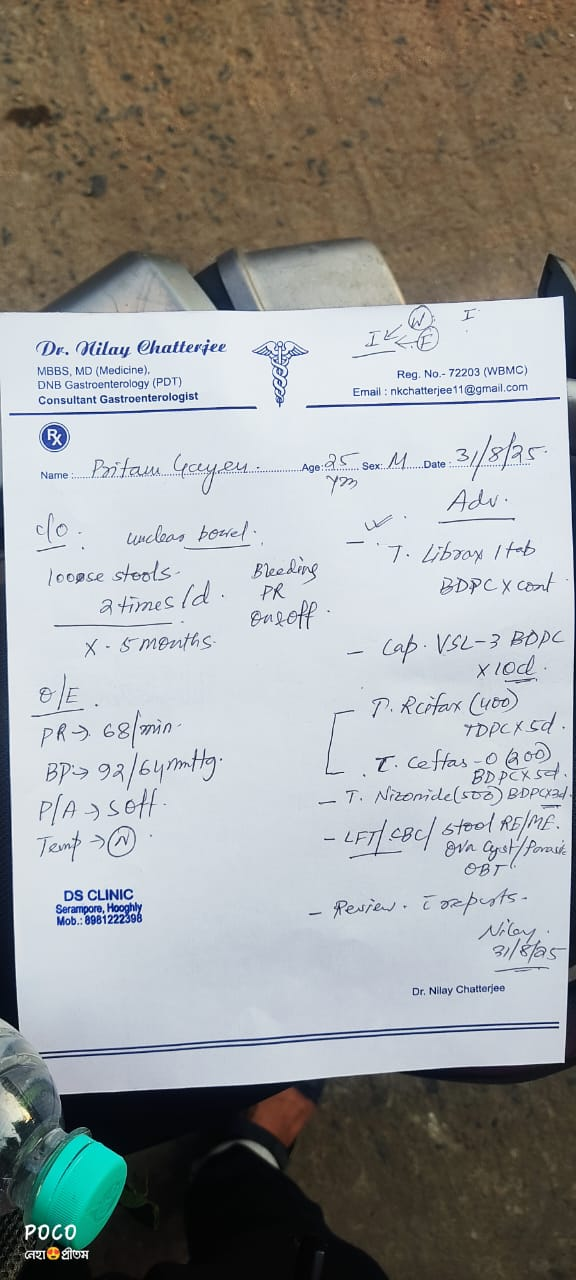 Dr. Nilay Chatterjee
MBBS, MD (Medicine),
DNB Gastroenterology (PDT)
Consultant Gastroenterologist
W I
I F
Reg. No.- 72203 (WBMC)
Email : nkchatterjee11@gmail.com
Rx
Name : Pritam Gayen. Age: 25 yrs Sex: M Date : 31/8/25.
c/o. unclear bowel.
looose stools.
2 times/d.
x - 5 months.
Bleeding
PR
on & off.
O/E.
PR → 68/min.
BP → 92/64mmHg.
P/A → soft.
Temp → N.
DS CLINIC
Serampore, Hooghly
Mob.: 8981222398
Adv.
- T. Librax 1 tab
BDPC x cont
- Cap. VSL-3 BDPC
x 10d.
T. Rcifax (400)
TDPC x 5d.
T. Ceftas-O (200)
BDPC x 5d.
- T. Nizonide (500) BDPC x 3d.
- LFT/CBC/ Stool RE/ME.
Ova Cyst/Parasite
OBT.
- Review. c̄ reports.
Nilay.
31/8/25
Dr. Nilay Chatterjee
POCO
নেহা😍প্রীতম